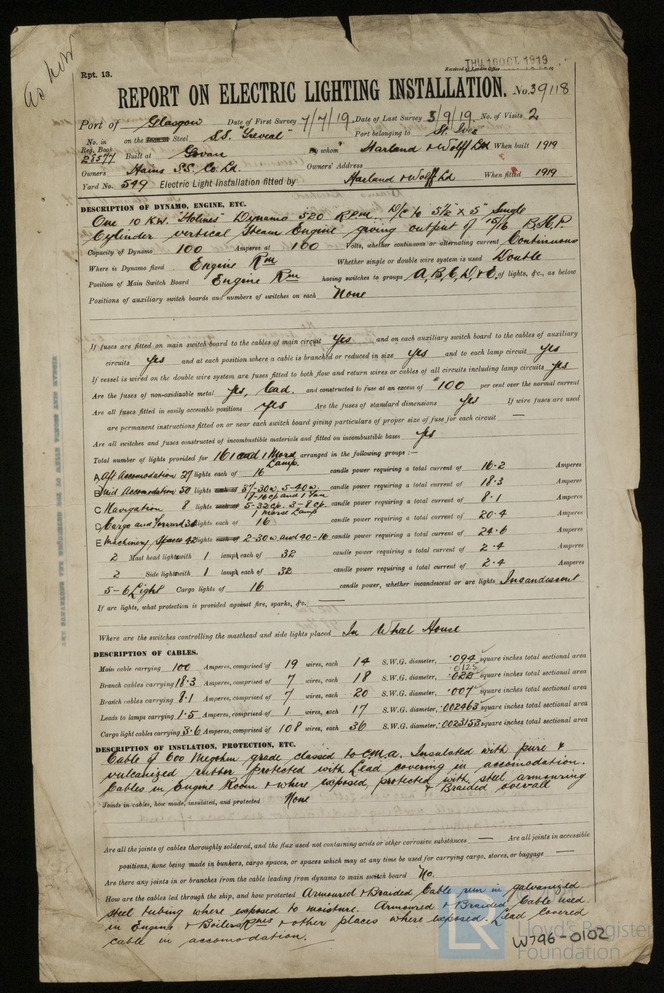 As now
Rpt. 13.
THU. 16 OCT. 1919
Received at London Office
REPORT ON ELECTRIC LIGHTING INSTALLATION. No. 39118
Port of Glasgow Date of First Survey 7/7/19 Date of Last Survey 3/9/19 No. of Visits 2
No. in Reg. Book 28577 on the Steel S.S. "Treveal" Port belonging to St. Ives
Built at Govan By whom Harland & Wolff Ld When built 1919
Owners Hains S.S. Co. Ld. Owners' Address
Yard No. 549 Electric Light Installation fitted by Harland & Wolff Ld When fitted 1919
DESCRIPTION OF DYNAMO, ENGINE, ETC.
One 10 K.W. "Holmes" Dynamo 520 R.P.M. D/C to 5½" x 5" Single
Cylinder vertical Steam Engine giving output of 15/16 B.H.P.
Capacity of Dynamo 100 Amperes at 100 Volts, whether continuous or alternating current Continuous
Where is Dynamo fixed Engine Rm Whether single or double wire system is used Double
Position of Main Switch Board Engine Rm having switches to groups A, B, C, D, & E of lights, &c., as below
Positions of auxiliary switch boards and numbers of switches on each None
If fuses are fitted on main switch board to the cables of main circuit Yes and on each auxiliary switch board to the cables of auxiliary
circuits Yes and at each position where a cable is branched or reduced in size Yes and to each lamp circuit Yes
If vessel is wired on the double wire system are fuses fitted to both flow and return wires or cables of all circuits including lamp circuits Yes
Are the fuses of non-oxidisable metal Yes, Lead. and constructed to fuse at an excess of 100 per cent over the normal current
Are all fuses fitted in easily accessible positions Yes Are the fuses of standard dimensions Yes If wire fuses are used
are permanent instructions fitted on or near each switch board giving particulars of proper size of fuse for each circuit —
Are all switches and fuses constructed of incombustible materials and fitted on incombustible bases Yes
Total number of lights provided for 161 and 1 Morse Lamp. arranged in the following groups :—
A Aft Accomodation 27 lights each of 16 candle power requiring a total current of 16.2 Amperes
B Mid Accomodation 50 lights 37-30w, 5-40w. 8-16 cp and 1 Fan candle power requiring a total current of 18.3 Amperes
C Navigation 8 lights 5-32cp. 3-8cp. 1 Morse Lamp candle power requiring a total current of 8.1 Amperes
D Cargo and Forward 34 lights each of 16 candle power requiring a total current of 20.4 Amperes
E Machinery Spaces 42 lights 2-30w and 40-16 candle power requiring a total current of 24.6 Amperes
2 Mast head light with 1 lamp each of 32 candle power requiring a total current of 2.4 Amperes
2 Side light with 1 lamp each of 32 candle power requiring a total current of 2.4 Amperes
5-6 Light Cargo lights of 16 candle power, whether incandescent or arc lights Incandescent
If arc lights, what protection is provided against fire, sparks, &c.
Where are the switches controlling the masthead and side lights placed In Wheel House
DESCRIPTION OF CABLES.
Main cable carrying 100 Amperes, comprised of 19 wires, each 14 S.W.G. diameter, .094 square inches total sectional area
Branch cables carrying 18.3 Amperes, comprised of 7 wires, each 18 S.W.G. diameter, .0125 square inches total sectional area
Branch cables carrying 8.1 Amperes, comprised of 7 wires, each 20 S.W.G. diameter, .007 square inches total sectional area
Leads to lamps carrying 1.5 Amperes, comprised of 1 wires, each 17 S.W.G. diameter, .002463 square inches total sectional area
Cargo light cables carrying 3.6 Amperes, comprised of 108 wires, each 36 S.W.G. diameter, .0023153 square inches total sectional area
DESCRIPTION OF INSULATION, PROTECTION, ETC.
Cable of 600 Megohm grade classed to C.M.A. Insulated with pure &
vulcanized rubber protected with Lead covering in accomodation.
Cables in Engine Room & where exposed, protected with steel armouring
& Braided overall
Joints in cables, how made, insulated, and protected None
Are all the joints of cables thoroughly soldered, and the flux used not containing acids or other corrosive substances — Are all joints in accessible
positions, none being made in bunkers, cargo spaces, or spaces which may at any time be used for carrying cargo, stores, or baggage —
Are there any joints in or branches from the cable leading from dynamo to main switch board No.
How are the cables led through the ship, and how protected Armoured & Braided Cable run in galvanized
steel tubing where exposed to moisture. Armoured & Braided Cable used
in Engine & Boiler Rms & other places where exposed. Lead covered
cable in accomodation.
LR
Lloyd's Register
Foundation
W796-0102